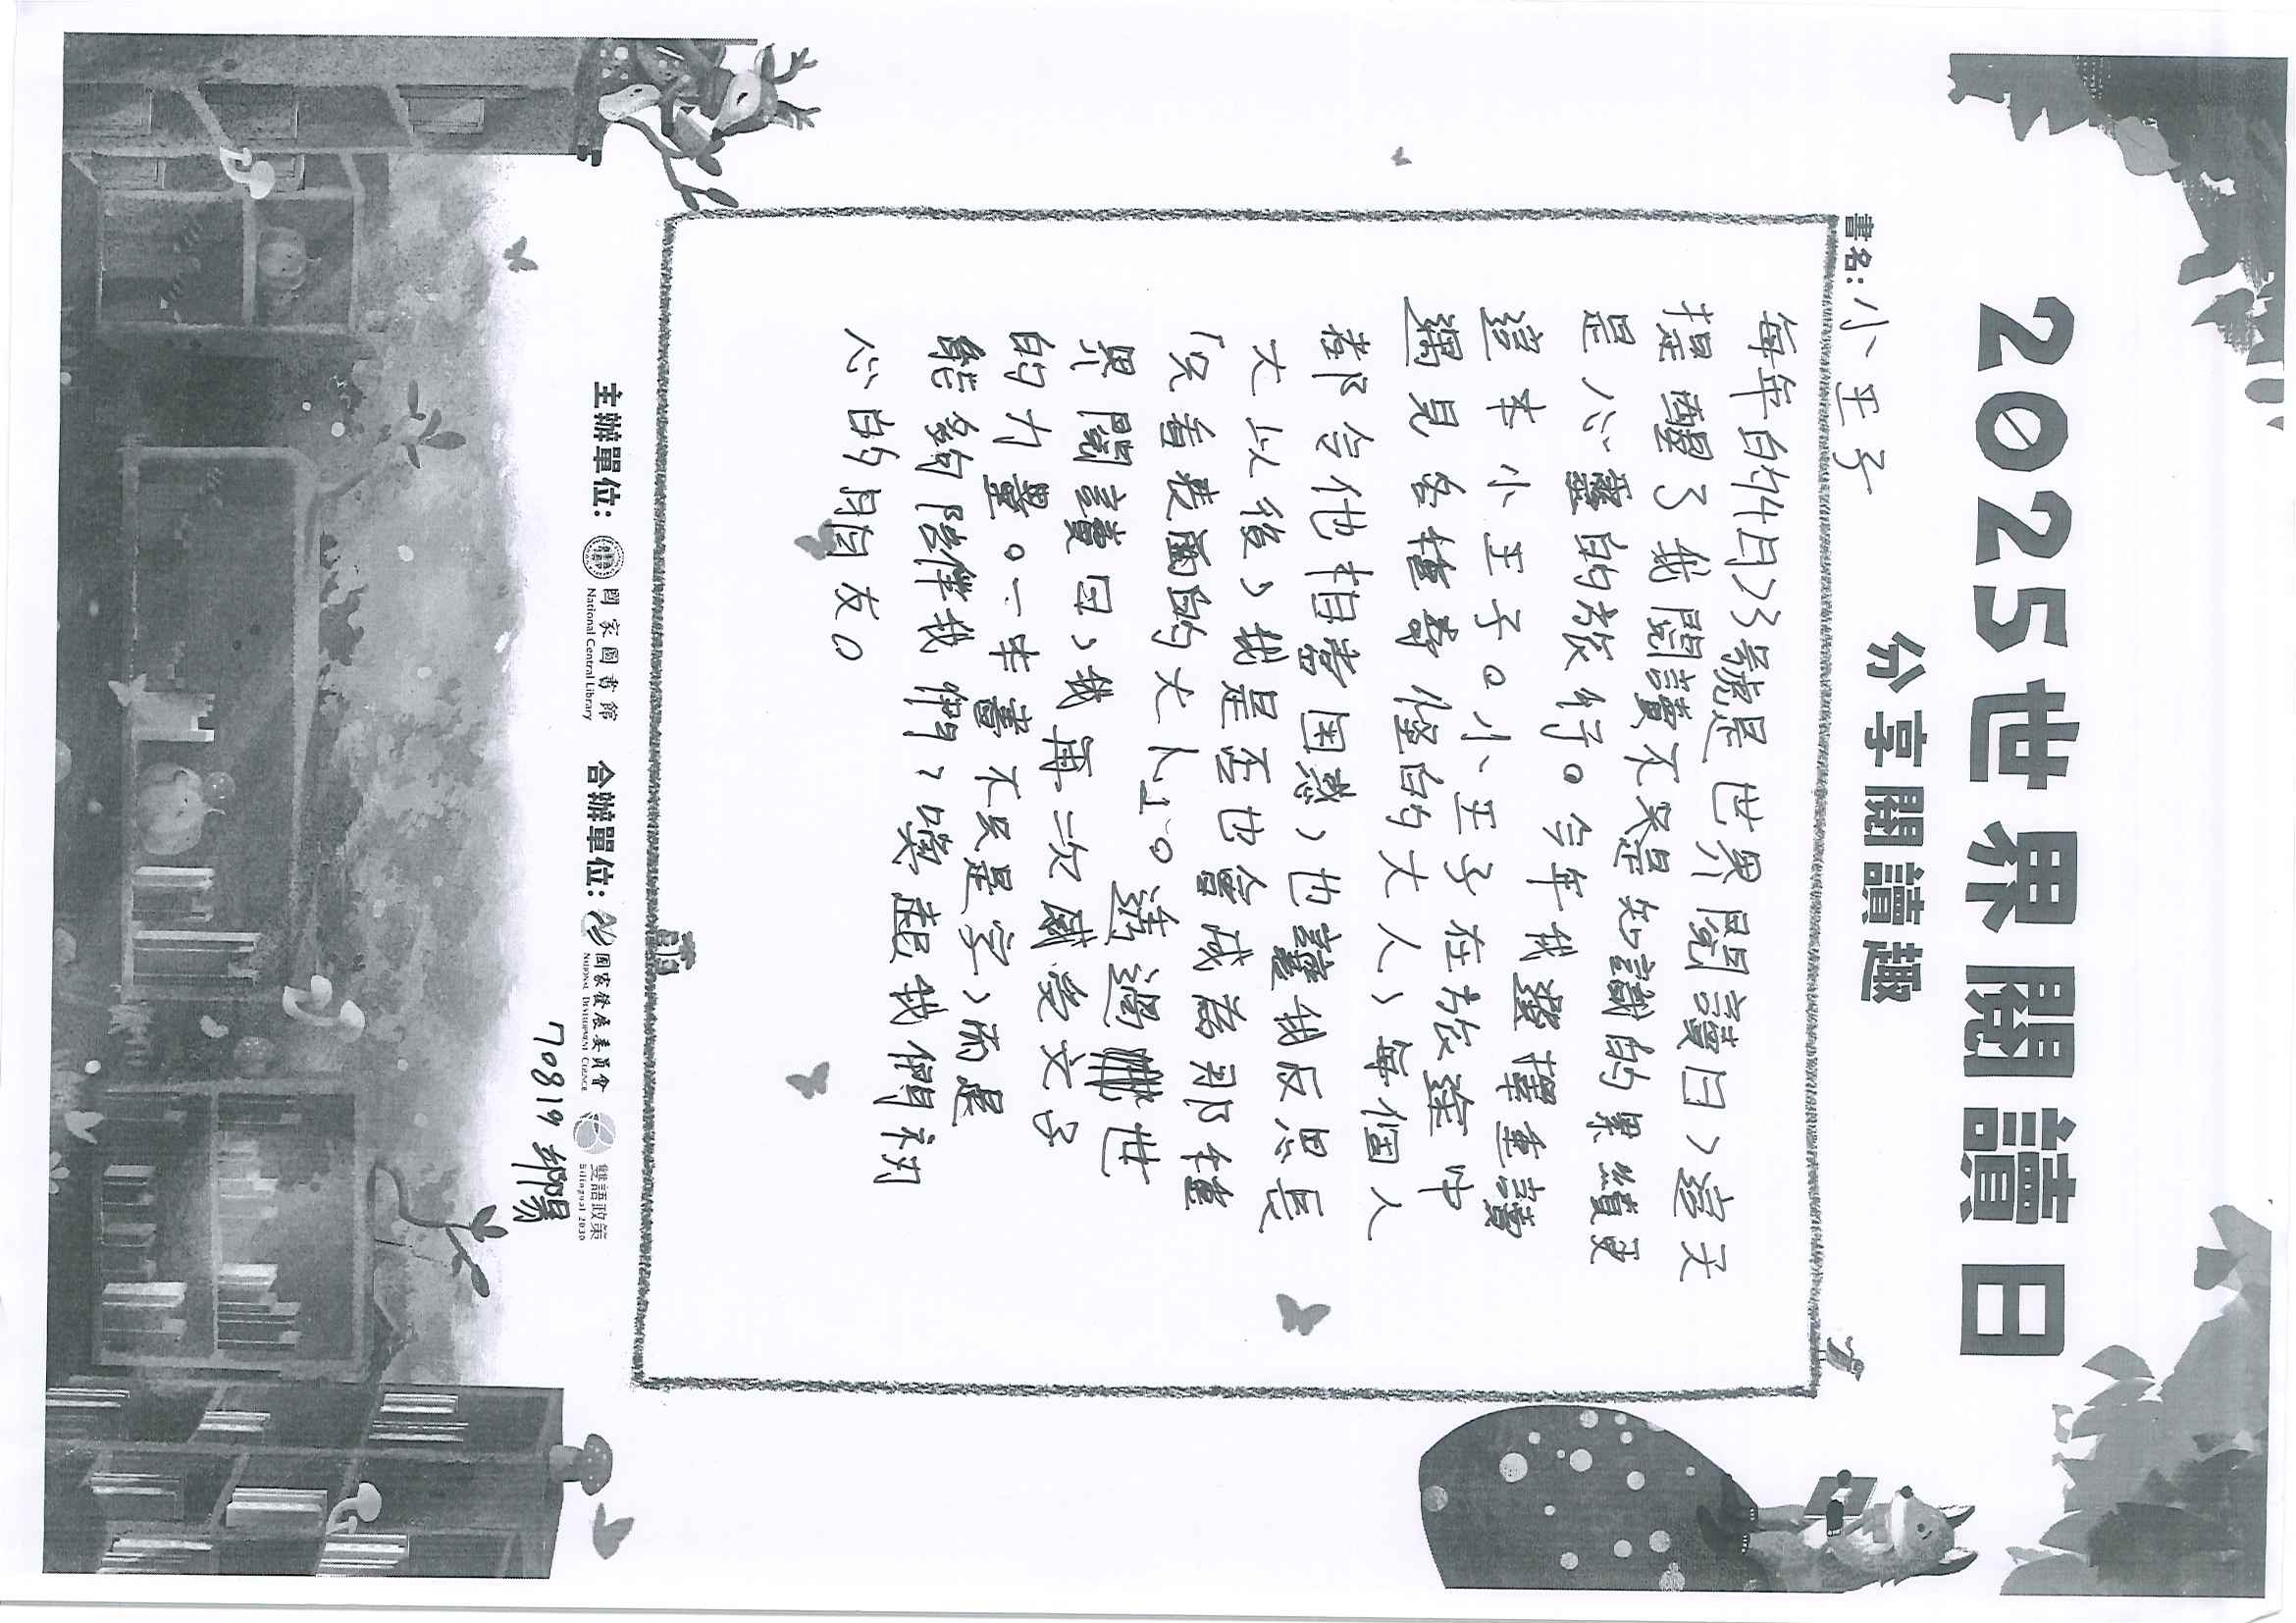 2025世界閱讀日
分享閱讀趣
書名：小王子
每年的4月23號是世界閱讀日，這天
提醒了我閱讀不只是知識的累積更
是心靈的旅行。今年我選擇重讀
這本小王子。小王子在旅途中
遇見各種奇怪的大人，每個人
都令他相當困惑，也讓我反思長
大以後，我是否也會成為那種
「只看表面的大人」。透過世
界閱讀日，我再次感受文字
的力量。一本書不只是字，而是
能夠陪伴我們、喚起我們初
心的朋友。
主辦單位：國家圖書館 National Central Library 合辦單位：國家發展委員會 National Development Council 雙語政策 Bilingual 2030
70819